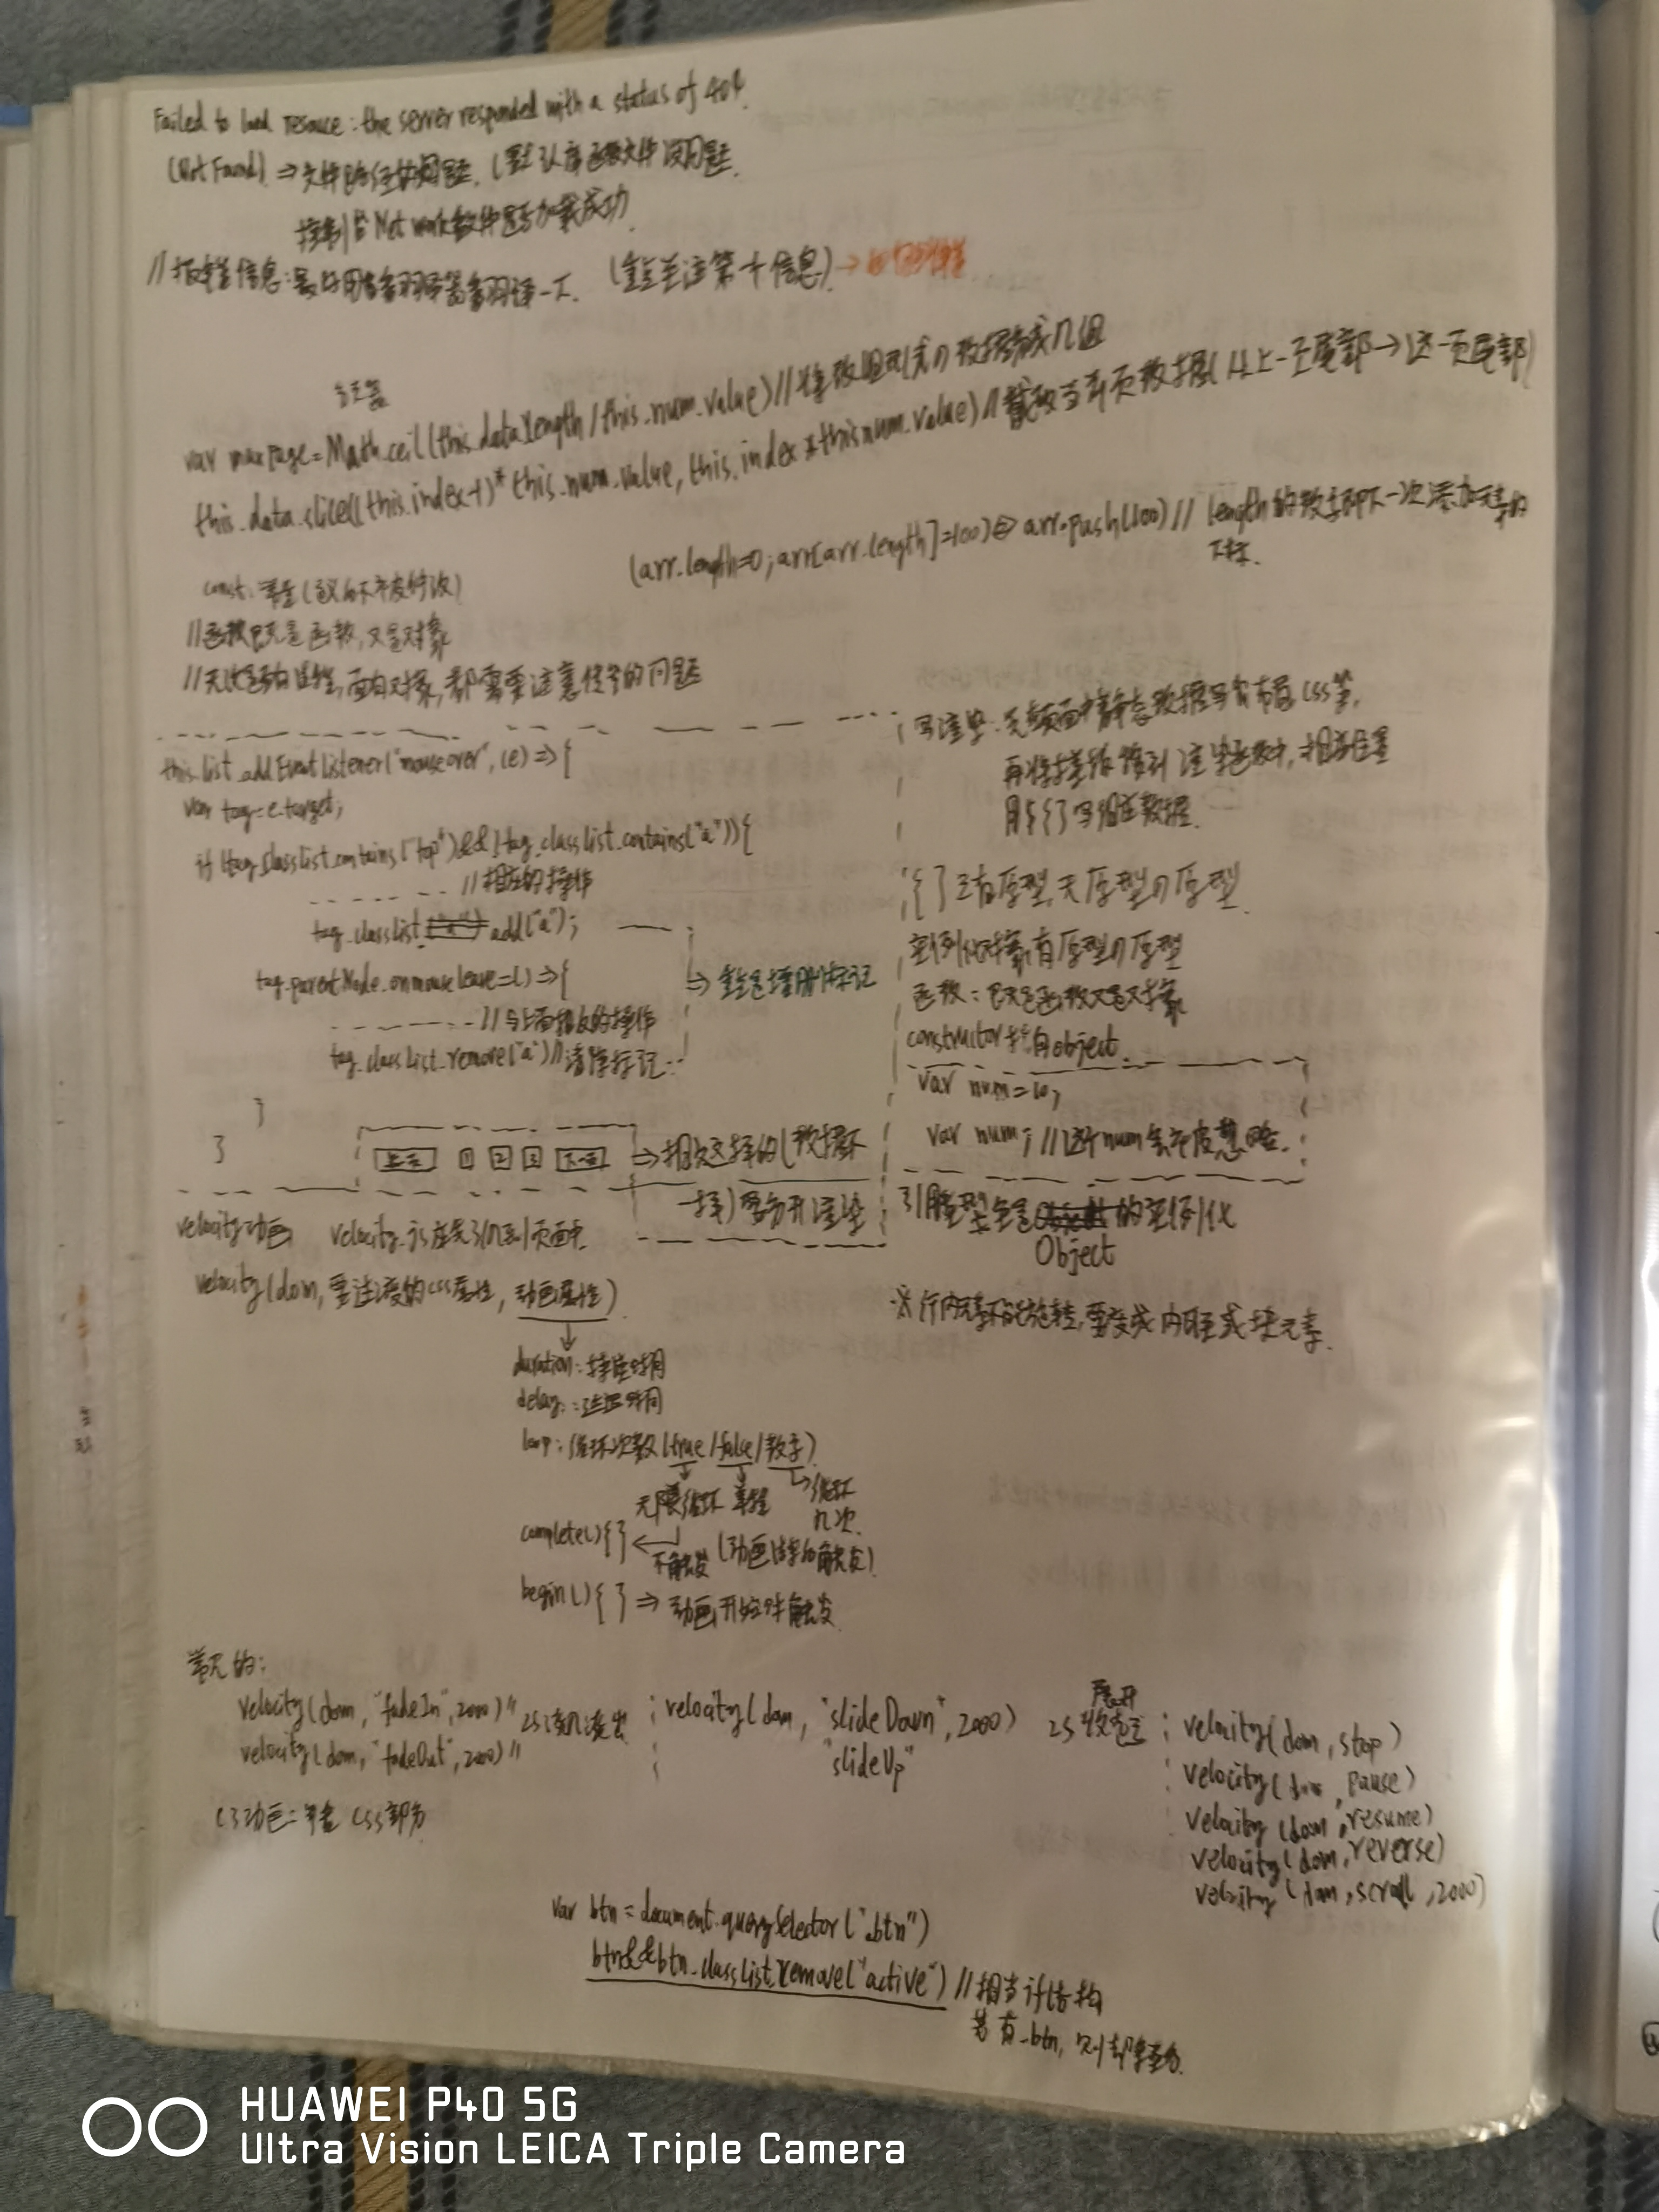 Failed to load resouce: the server responded with a status of 404.
(Not Found) ⇒ 文件路径的问题. (默认 文件没问题.
控制台 Network 文件是否加载成功
//报错信息:最好用 浏览器 一下. (重点关注第一个信息) →
var maxpage=Math.ceil(this.data.length/this.num.value)//将数组 数据 成几组
this.data.slice((this.index-1)*this.num.value, this.index*this.num.value)//截取当前页数据(从上一页尾部→这一页尾部)
(arr.length=0; arr[arr.length]=100)⇔ arr.push(100)// length的数字即下一次添加元素的
下标.
const: 常量(定义的不可被修改)
//函数既是函数,又是对象
//无论是面向过程,面向对象,都需要注意 的问题
this.list.addEventListener("mouseover", (e)=>{
var tag=e.target;
if (tag.classList.contains("top")&&!tag.classList.contains("a")){
//相应的操作
tag.classList. add("a");
tag.parentNode.onmouseleave=()=>{
//与上面相反的操作
tag.classList.remove("a")//清除标记
}
}
⇒ 重点是增删标记
上一页 1 2 3 下一页 ⇒相似选择的(数据不
一样)要分开渲染
写渲染:先页面中静态数据写布局,css等,
再将 放到渲染函数中,相应位置
用${}写相应数据.
{}只有原型,无原型的原型.
实例化对象,有原型的原型
函数:既是函数又是对象
constructor指向object.
var num=10;
var num; //这个num会被忽略.
引用类型全是 的实例化
Object
※行内元素不能旋转,要变成内联或块元素.
velocity动画 velocity.js应先引入到页面中.
velocity(dom, 要过渡的css属性, 动画属性)
duration:持续时间
delay:延迟时间
loop:循环次数(true/false/数字)
无限循环 单程 循环
几次.
complete(){} ← 不触发 (动画结束的触发)
begin(){} ⇒ 动画开始时触发
常见的:
velocity(dom, "fadeIn", 2000)" 2s淡入淡出
velocity(dom, "fadeOut", 2000)"
velocity(dom, "slideDown", 2000) 2s 展开
收起
"slideUp"
velocity(dom, stop)
velocity(dom, pause)
velocity(dom, resume)
velocity(dom, reverse)
velocity(dom, scroll, 2000)
C3动画: css部分
var btn=document.querySelector(".btn")
btn&&btn.classList.remove("active") //相当 if结构
若有.btn, 则
HUAWEI P40 5G
Ultra Vision LEICA Triple Camera